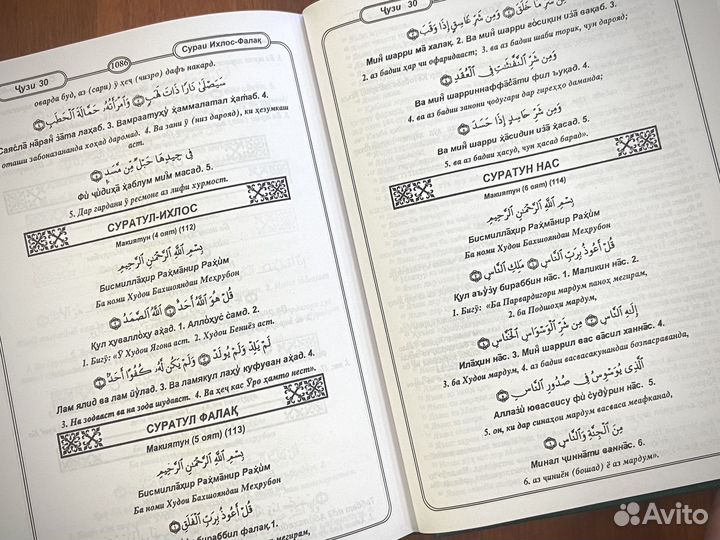 Ҷузи 30
1086
Сураи Ихлос-Фалақ
оварда буд, аз (сари) ӯ ҳеҷ (чизро) дафъ накард.
سَيَصْلَىٰ نَارًا ذَاتَ لَهَبٍ ۝ وَامْرَأَتُهُ حَمَّالَةَ الْحَطَبِ ۝
Саясла̄ на̄ран̃ з̄а̄та лаҳаб. 3. Вамраатуҳӯ ҳаммалатал ҳатаб. 4.
оташи забоназананда хоҳад даромад. 4. Ва зани ӯ (низ дарояд), ки ҳезумкаш
аст.
فِي جِيدِهَا حَبْلٌ مِّن مَّسَدٍ ۝
Фӣ ҷӣдиҳа̄ ҳаблум мим̃ масад. 5.
5. Дар гардани ӯ ресмоне аз лифи хурмост.
СУРАТУЛ-ИХЛОС
Макиятун (4 оят) (112)
بِسْمِ اللَّهِ الرَّحْمَٰنِ الرَّحِيمِ
Бисмилла̄ҳир Раҳма̄нир Раҳӣм
Ба номи Худои Бахшояндаи Меҳрубон
قُلْ هُوَ اللَّهُ أَحَدٌ ۝ اللَّهُ الصَّمَدُ ۝
Қул ҳуваллоҳу аҳад. 1. Аллоҳус̣ самад. 2.
1. Бигӯ: «Ӯ Худои Ягона аст. 2. Худои Бениёз аст.
لَمْ يَلِدْ وَلَمْ يُولَدْ ۝ وَلَمْ يَكُن لَّهُ كُفُوًا أَحَدٌ ۝
Лам ялид ва лам ӣӯлад. 3. Ва ламякул лаҳӯ куфуван аҳад. 4.
3. На зодааст ва на зода шудааст. 4. Ва ҳеҷ кас Ӯро ҳамто нест».
СУРАТУЛ ФАЛАҚ
Макиятун (5 оят) (113)
بِسْمِ اللَّهِ الرَّحْمَٰنِ الرَّحِيمِ
Бисмилла̄ҳир Раҳма̄нир Раҳӣм
Ба номи Худои Бахшояндаи Меҳрубон
قُلْ أَعُوذُ بِرَبِّ الْفَلَقِ ۝
бираббил фалақ. 1.
Ҷузи 30
مِن شَرِّ مَا خَلَقَ ۝ وَمِن شَرِّ غَاسِقٍ إِذَا وَقَبَ ۝
Мин̃ шарри ма̄ халақ. 2. Ва мин̃ шарри ғосиқин из̄а̄ вақаб. 3.
2. аз бадии ҳар чи офаридааст; 3. ва аз бадии шаби торик, чун дарояд;
وَمِن شَرِّ النَّفَّاثَاتِ فِي الْعُقَدِ ۝
Ва мин̃ шарриннаффа̄с̄а̄ти фил ъуқад. 4.
4. ва аз бадии занони ҷодугари дар гиреҳҳо даманда;
وَمِن شَرِّ حَاسِدٍ إِذَا حَسَدَ ۝
Ва мин̃ шарри ҳа̄сидин из̄а̄ ҳасад. 5.
5. ва аз бадии ҳасуд, чун ҳасад барад».
СУРАТУН НАС
Макиятун (6 оят) (114)
بِسْمِ اللَّهِ الرَّحْمَٰنِ الرَّحِيمِ
Бисмилла̄ҳир Раҳма̄нир Раҳӣм
Ба номи Худои Бахшояндаи Меҳрубон
قُلْ أَعُوذُ بِرَبِّ النَّاسِ ۝ مَلِكِ النَّاسِ ۝
Қул аъӯз̄у бираббин на̄с. 1. Маликин на̄с. 2.
1. Бигӯ: «Ба Парвардигори мардум паноҳ мегирам,
2. ба Подшоҳи мардум,
إِلَٰهِ النَّاسِ ۝ مِن شَرِّ الْوَسْوَاسِ الْخَنَّاسِ ۝
Ила̄ҳин на̄с. 3. Мин̃ шаррил вас васил ханна̄с. 4.
3. ба Худои мардум, 4. аз бадии васвасакунандаи бозпасраванда,
الَّذِي يُوَسْوِسُ فِي صُدُورِ النَّاسِ ۝
Аллаз̄ӣ ювасвису фӣ с̣удӯрин на̄с. 5.
5. он, ки дар синаҳои мардум васваса меафканад,
مِنَ الْجِنَّةِ وَالنَّاسِ ۝
Минал ҷиннати ванна̄с. 6.
6. аз ҷиниён (бошад) ё аз мардум».
Avito